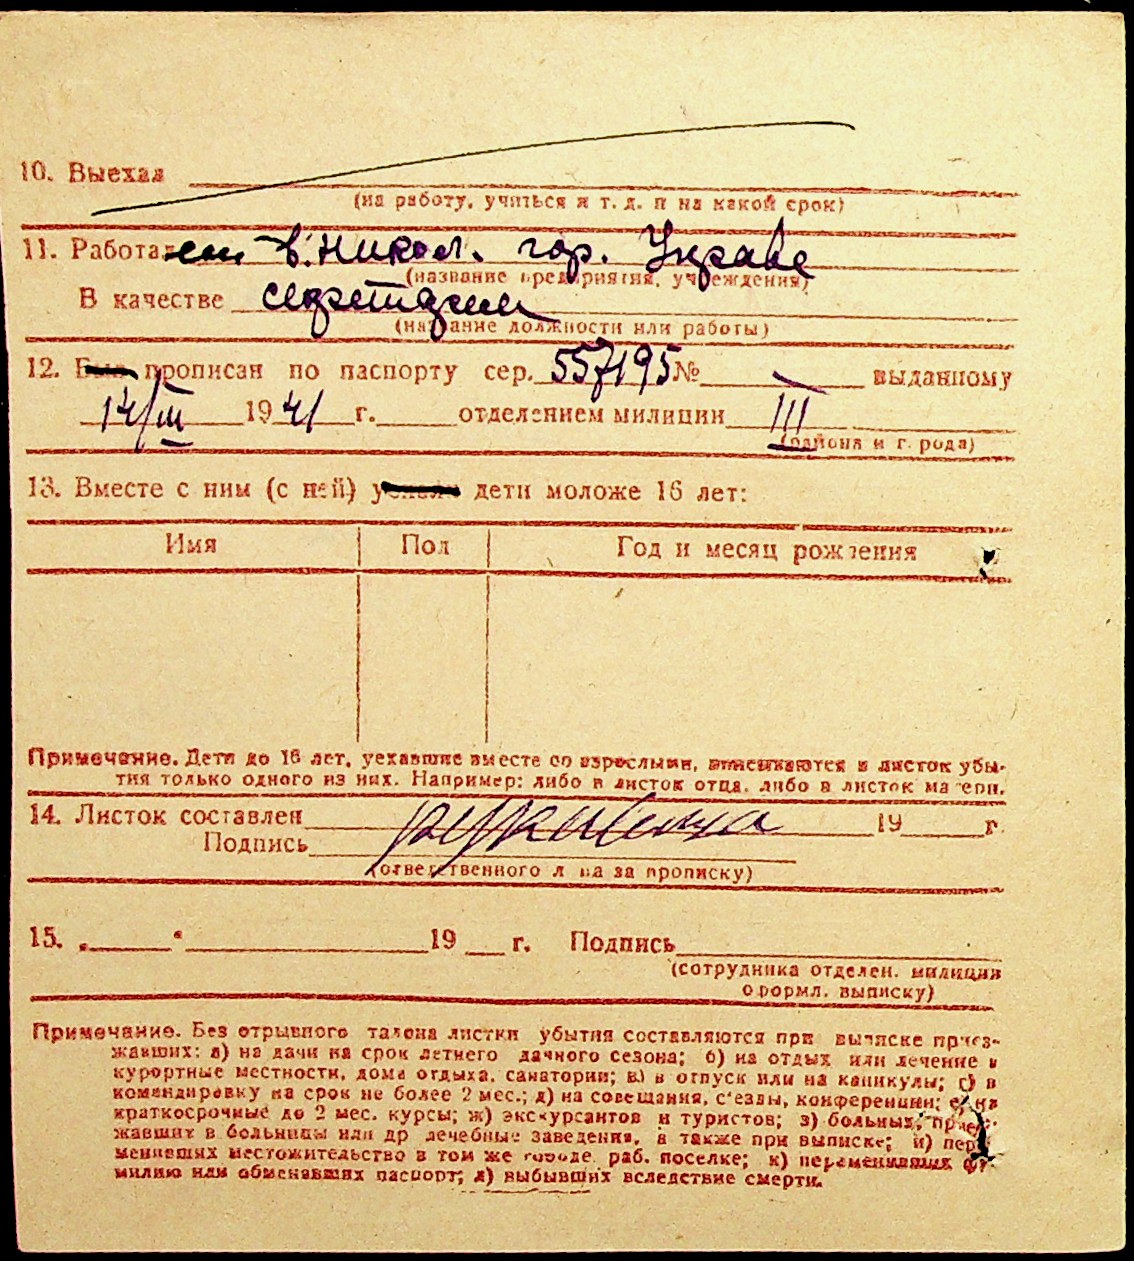 10. Выехал
(на работу, учиться и т. д. и на какой срок)
11. Работа в Никол. гор. Управе
(название предприятия, учреждения)
В качестве секретарем
(название должности или работы)
12. прописан по паспорту сер. 557195 № — выданному
14/III 1941 г. отделением милиции III
(района и города)
13. Вместе с ним (с ней) дети моложе 16 лет:
Имя Пол Год и месяц рождения
Примечание. Дети до 16 лет, уехавшие вместе со взрослыми, вписываются в листок убы-
тия только одного из них. Например: либо в листок отца, либо в листок матери.
14. Листок составлен 19 г.
Подпись
(ответственного лица за прописку)
15. „ “ 19 г. Подпись
(сотрудника отделен. милиции
оформл. выписку)
Примечание. Без отрывного талона листки убытия составляются при выписке приез-
жавших: а) на дачи на срок летнего дачного сезона; б) на отдых или лечение в
курортные местности, дома отдыха, санатории; в) в отпуск или на каникулы; г) в
командировку на срок не более 2 мес.; д) на совещания, с'езды, конференции; е) на
краткосрочные до 2 мес. курсы; ж) экскурсантов и туристов; з) больных, приез-
жавших в больницы или др лечебные заведения, а также при выписке; и) пере-
менивших местожительство в том же городе, раб. поселке; к) переменивших фа-
милию или обменявших паспорт; л) выбывших вследствие смерти.